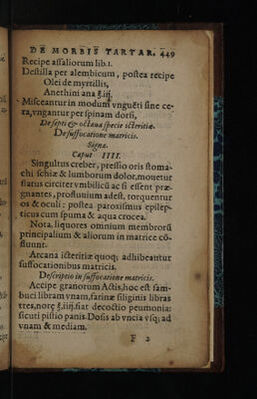 DE MORBIS TARTAR. 449
Recipe assaliorum lib.1.
Destilla per alembicum, postea recipe
Olei de myrtillis,
Anethini ana ℥.iij.
Misceantur in modum vnguẽti sine ce-
ra, vngantur per spinam dorsi,
De septi & octaua specie icteritiæ.
De suffocatione matricis.
Signa.
Caput IIII.
Singultus creber, pressio oris stoma-
chi schiæ & lumborum dolor, mouetur
flatus circiter vmbilicũ ac si essent præ-
gnantes, profluuium adest, torquentur
os & oculi: postea paroxismus epilep-
ticus cum spuma & aqua crocea.
Nota, liquores omnium membrorũ
principalium & aliorum in matrice cõ-
fluunt.
Arcana icteritiæ quoq; adhibeantur
suffocationibus matricis.
Descriptio in suffocatione matricis.
Accipe granorum Actis, hoc est sam-
buci libram vnam, farinæ siliginis libras
tres, norę ℥.iiij. fiat decoctio peumonia:
sicuti pistio panis. Dosis ab vncia vsq; ad
vnam & mediam.
F 2